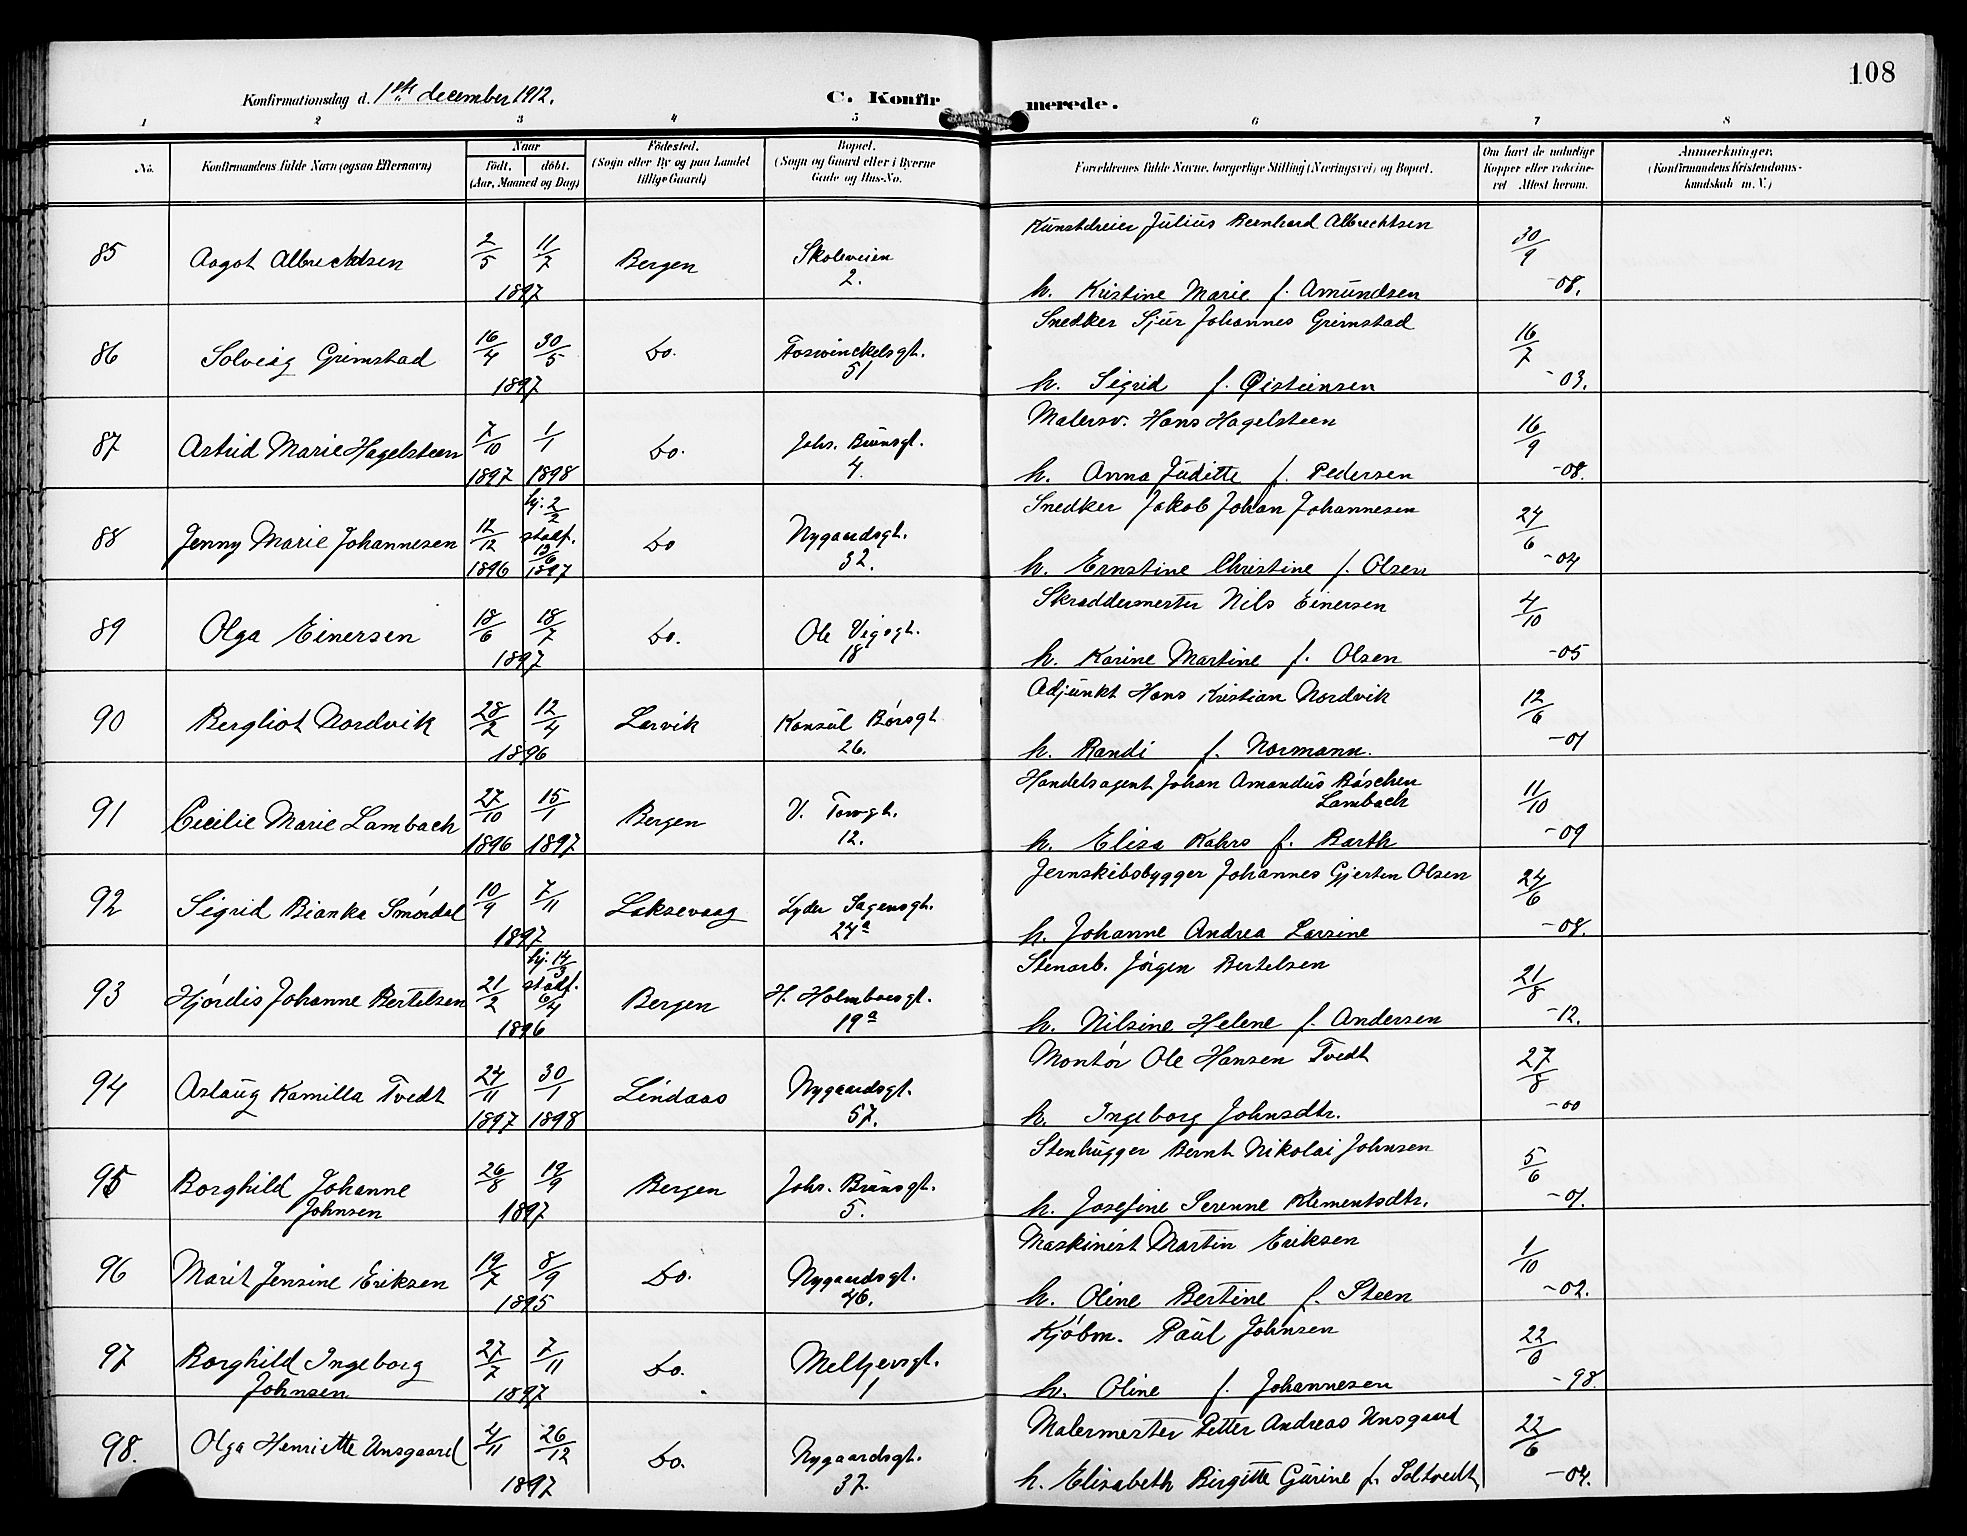 108
Konfirmationsdag d. 1ste december 1912. C. Konfirmerede.
1 2 3 4 5 6 7 8
No. Konfirmandens fulde Navn (ogsaa Efternavn) Naar født, døbt. (Aar, Maaned og Dag) Fødested. (Sogn eller By og paa Landet tillige Gaard) Bopæl. (Sogn og Gaard eller i Byerne Gade og Hus-No. Forældrenes fulde Navne, borgerlige Stilling (Næringsvei) og Bopæl. Om havt de naturlige Kopper eller vaccineret Attest herom. Anmærkninger, (Konfirmandens Kristendomskundskab m. V.)
Kunstdreier Julius Bernhard Albrechtsen
85 Aagot Albrechtsen 2/5 11/7 1897 Bergen Skoleveien 2. 30/9 -08.
h. Kristine Marie f. Amundsen
Snedker Sjur Johannes Grimstad
86 Solveig Grimstad 16/4 30/5 1897 Do. Foswinckelsgt. 51 16/7 -03.
h. Sigrid f. Øisteinsen
Malersv. Hans Hagelsteen
87 Astrid Marie Hagelsteen 7/10 1897 1/1 1898 Do. Johs. Brunsgt. 4. 16/9 -08.
h. Anna Juditte f. Pedersen
Snedker Jakob Johan Johannesen
88 Jenny Marie Johannesen 12/12 1896 hj: 2/2 stadf. 13/6 1897 Do Nygaardsgt. 32. 24/6 -04
h. Ernstine Christine f. Olsen
Skræddermester Nils Einersen
89 Olga Einersen 18/6 18/7 1897 Do. Ole Vigsgt. 18 4/10 -05
h. Karine Martine f. Olsen
Adjunkt Hans Kristian Nordvik
90 Bergliot Nordvik 28/2 12/4 1896 Larvik Konsul Børsgt 26. 12/6 -01
h. Randi f. Normann.
Handelsagent Johan Amandus Bøschen Lambach
91 Cecilie Marie Lambach 27/10 1896 15/1 1897 Bergen V. Torvgt. 12. 11/10 -09
h. Elisa Kahrs f. Barth
Jernskibsbygger Johannes Gjerten Olsen
92 Sigrid Bianka Smørdal 10/9 7/11 1897 Laksevaag Lyder Sagensgt. 24a 24/6 -08.
h. Johanne Andrea Larsine
Stenarb. Jørgen Bertelsen
93 Hjørdis Johanne Bertelsen 21/2 hj: 14/3 stadf. 6/4 1896 Bergen H. Holmboesgt. 19a 21/8 -12.
h. Nilsine Helene f. Andersen
Montør Ole Hansen Tvedt
94 Aslaug Kamilla Tvedt 24/11 1897 30/1 1898 Lindaas Nygaardsgt. 57. 27/8 -00
h. Ingeborg Johnsdtr.
Stenhugger Bernt Nikolai Johnsen
95 Borghild Johanne Johnsen 26/8 19/9 1897 Bergen Johs. Brunsgt. 5. 5/6 -01.
h. Josefine Serenne Klementsdtr.
Maskinist Martin Eriksen
96 Marit Jensine Eriksen 19/7 8/9 1895 Do. Nygaardsgt. 46. 1/10 -02.
h. Oline Bertine f. Steen
Kjøbm. Paul Johnsen
97 Borghild Ingeborg Johnsen 27/7 7/11 1897 Do. Meltzersgt. 1 22/6 -98.
h. Oline f. Johannesen
Malermester Petter Andreas Unsgaard
98. Olga Henriette Unsgaard 4/11 26/12 1897 Do. Nygaardsgt. 37. 22/6 -04.
h. Elisabeth Birgitte Gurine f. Soltvedt